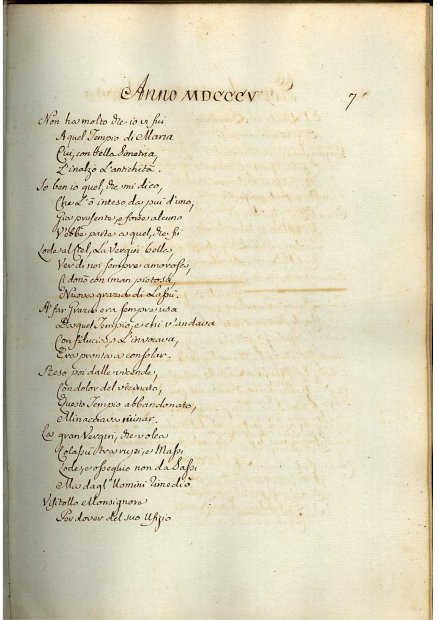 Anno MDCCCV
7
Non ha molto che io vi fui
A quel Tempio di Maria
Cui, con bella Simetria,
L'inalzò L'antichità.
Io ben io quel, che mi dico,
Che L'ò inteso da più d'uno,
Già presente, e forse alcuno
V'ebbe parte a quel, che fù
Lode al Ciel, La Vergin bella,
Ver di noi sempre amorosa,
Ci donò con man pietosa,
Nuova grazia di Lassù.
A far Grazie era sempre usa
Da quel Tempio, e chi v'andava
Con fiducia, e L'invocava,
Era pronta a consolar.
Reso poi dalle vicende,
Con dolor del vicinato,
Questo Tempio abbandonato,
Minacciava ruinar.
La gran Vergin, che volea
Colassù tra rupi, e Massi
Lode, e ossequio non da Sassi
Ma dagl'Uomini rimediò
Visitollo Monsignore
Per dover del suo Ufizio